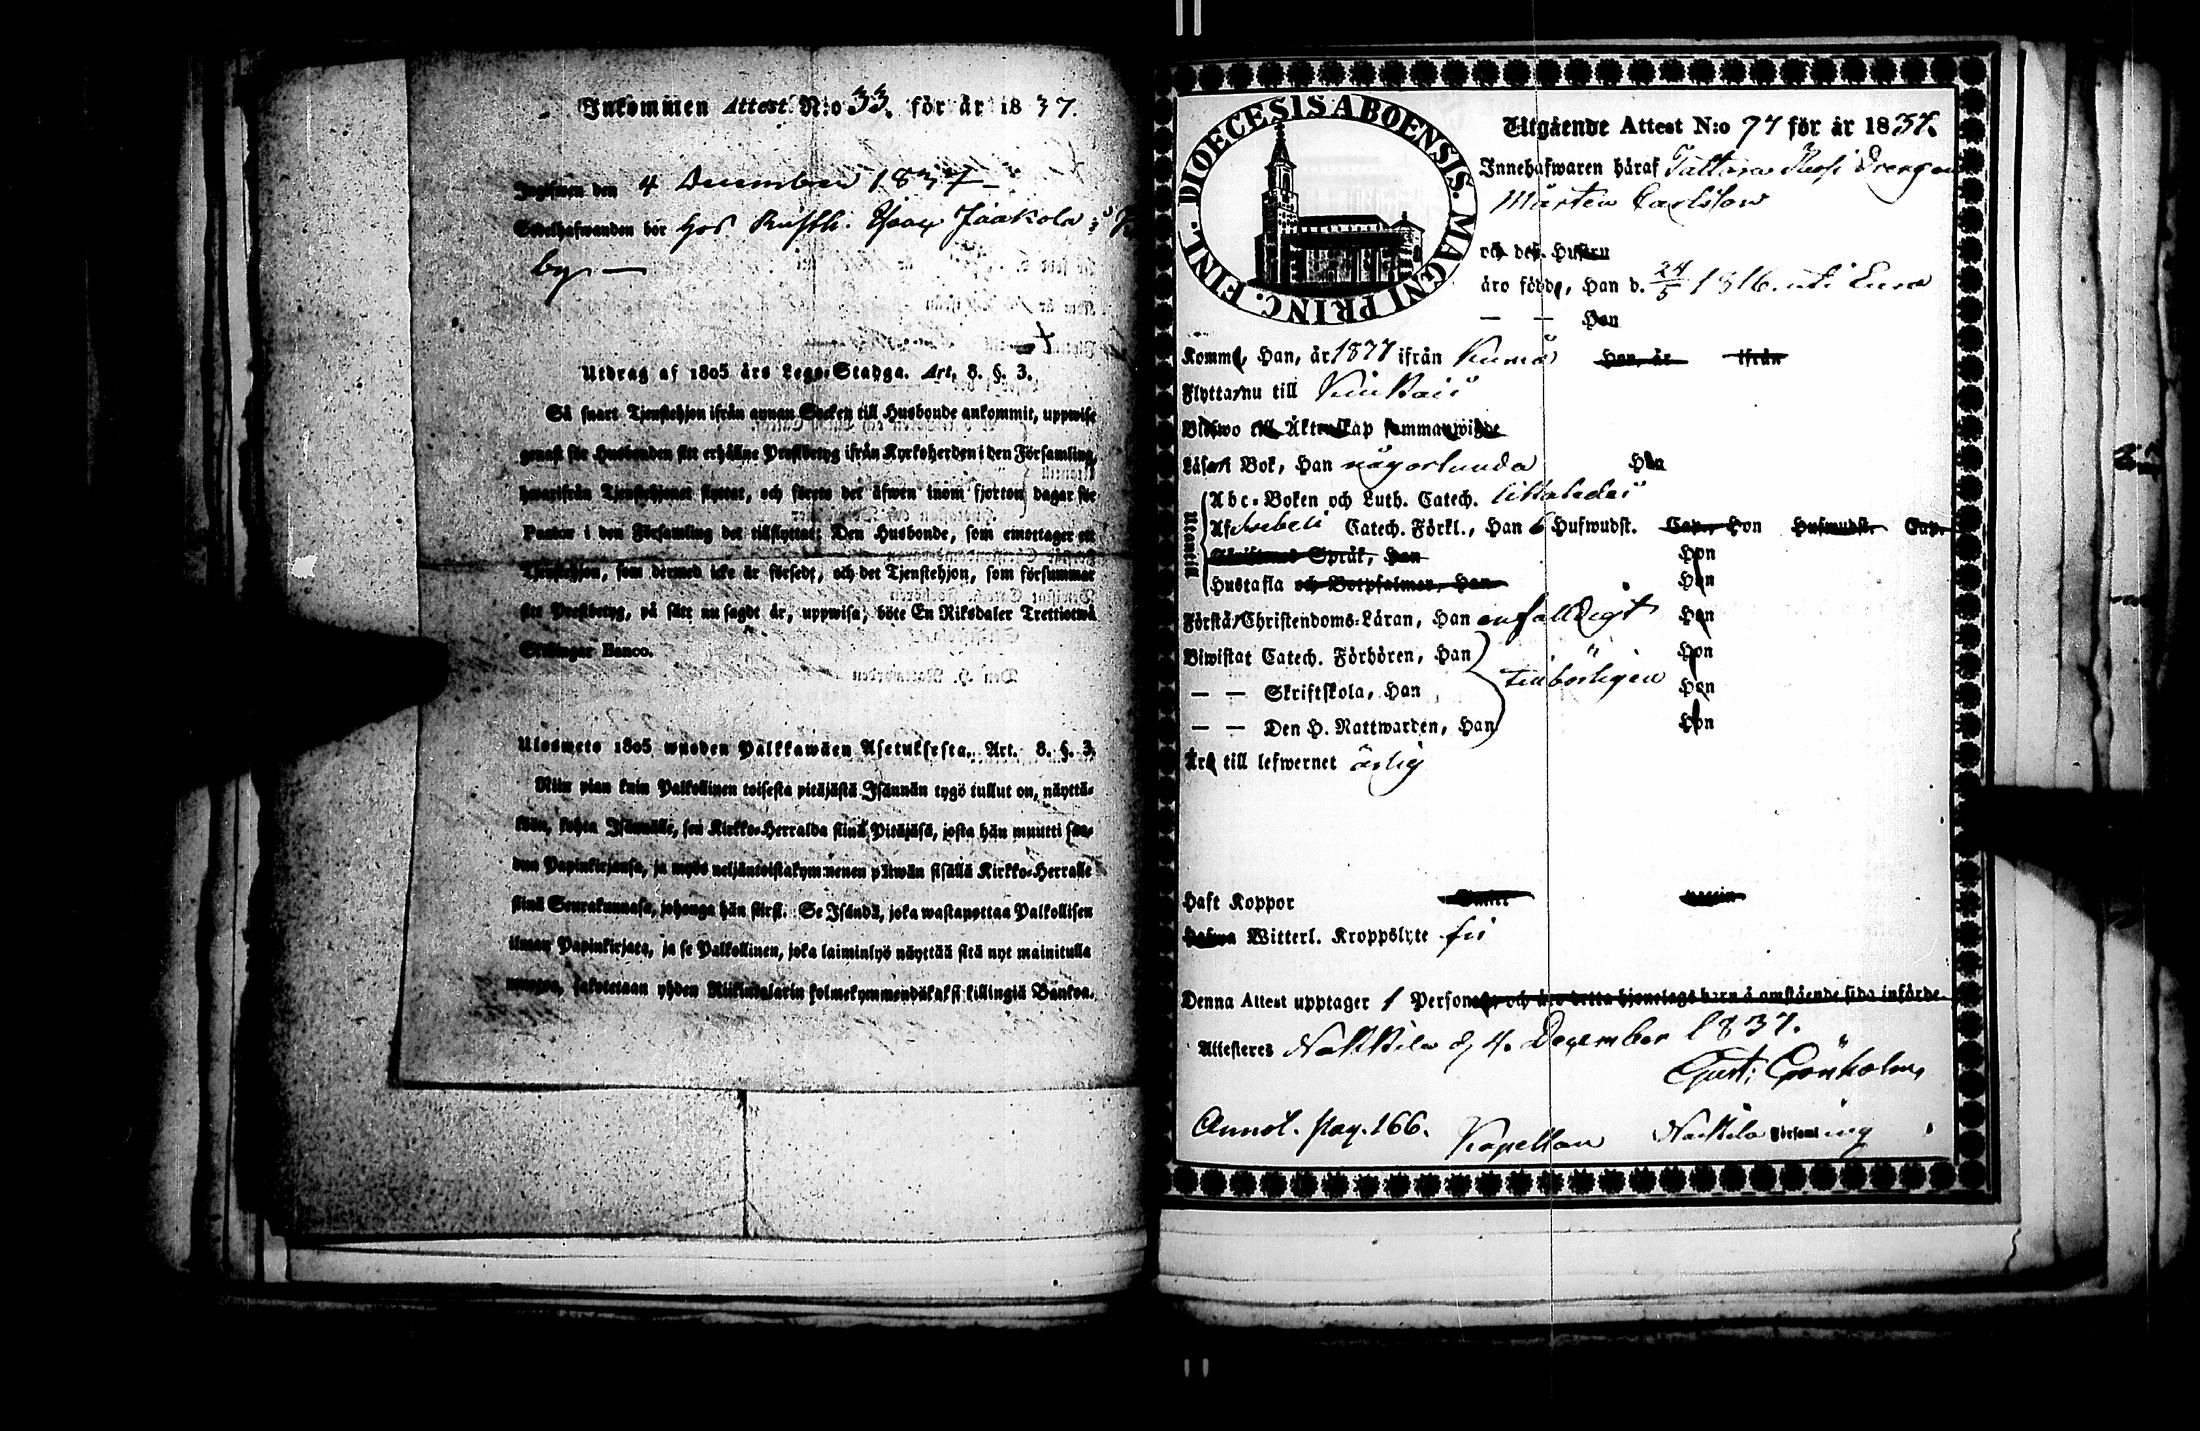 Inkommen Attest N:o 33. för år 1837.
Ingifwen den 4 December 1837
Sedelhafwanden bor hos Rusth. Isaac Jaakola i
by
Utdrag af 1805 års Lego-Stadga. Art. 8. §. 3.
Så snart Tjenstehjon ifrån annan Socken till Husbonde ankommit, uppwise
genast för Husbonden sitt erhållne Prestbetyg ifrån Kyrkoherden i den Församling,
hwarifrån Tjenstehjonet flyttat, och förete det äfwen inom fjorton dagar för
Pastor i den Församling det tillflyttat; Den Husbonde, som emottager ett
Tjenstehjon, som dermed icke är försedt, och det Tjenstehjon, som försummar
sitt Prestbetyg, på sätt nu sagdt är, uppwisa, böte En Riksdaler Trettiotwå
Skillingar Banco.
Ulosweto 1805 wuoden Palkkawäen Asetuksesta. Art. 8. §. 3.
Niin pian kuin Palkollinen toisesta pitäjästä Isännän tygö tullut on, näyttä-
kään, kohta Isännälle, sen Kirkko-Herralda siinä Pitäjäsä, josta hän muutti saa-
dun Papinkirjansa, ja myös neljäntoistakymmenen päiwän sisällä Kirkko-Herralle
siinä Seurakunnasa, johonga hän siirsi. Se Isändä, joka wastanottaa Palkollisen
ilman Papinkirjata, ja se Palkollinen, joka laiminlyö näyttää sitä nyt mainitulla
muotoa, sakotetaan yhden Riikintalarin kolmekymmendäkaksi killingiä Bankoa.
DIOECESIS ABOENSIS. MAGNI PRINC. FINL.
Utgående Attest N:o 97 för år 1837.
Innehafwaren häraf Drengen
Mårten Carlsson
och des Hustru
äro födde, Han d. 24/5 1816. uti Eura
— — Hon
Komme, Han, år 1877 ifrån Kumo Hon, år ifrån
Flytta nu till Kiukais
Blefwo till Äktenskap sammanwigde
Läsa i Bok, Han någorlunda Hon
Utantill
Abc-Boken och Luth. Catech.
Af Swebeli Catech. Förkl., Han 6 Hufwudst. Cap., Hon Hufwudst. Cap.
Christmas Språk, Han Hon
Hustafla och Botpsalmer, Han Hon
Förstå Christendoms-Läran, Han enfalldigt Hon
Biwistat Catech. Förhören, Han Hon
— — Skriftskola, Han tillbörligen Hon
— — Den H. Nattwarden, Han Hon
Äro till lefwernet ärlig
Haft Koppor
Hafwa Witterl. Kroppslyte fri
Denna Attest upptager 1 Personer och äro detta hjonelags barn å omstående sida införde
Attesteres Nakkila d. 4. December 1837.
Gust. Grönholm,
Annot. pag. 166. Kapellan Nakkila Församling